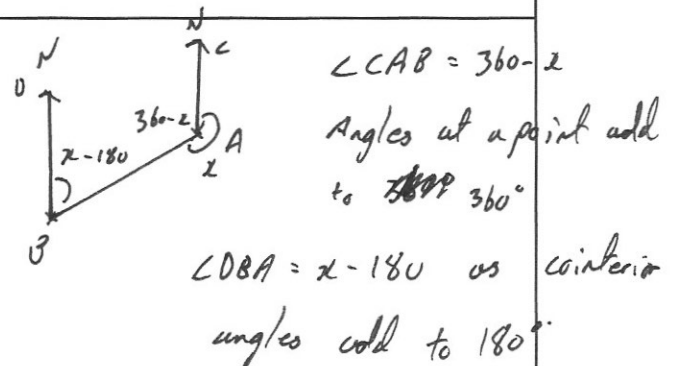 N
N
C
D
360-x
A
x-180
x
B
∠CAB = 360-x
Angles at a point add
to 360°
∠DBA = x-180 as cointerior
angles add to 180°